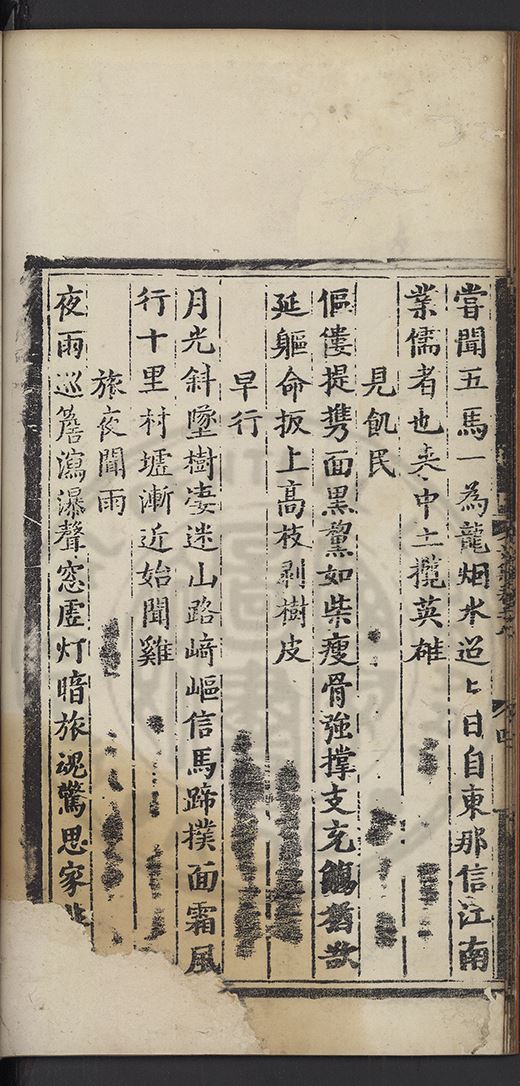 嘗聞五馬一為龍烟水迢〻日自東那信江南
業儒者也夹中土攬英雄
見飢民
傴僂提携面黑黧如柴瘦骨強撑支充膓猶欲
延軀命扳上高枝剥樹皮
早行
月光斜墜樹凄迷山路﨑嶇信馬蹄撲面霜風
行十里村墟漸近始聞雞
旅夜聞雨
夜雨巡簷瀉瀑聲窓虛灯暗旅魂驚思家